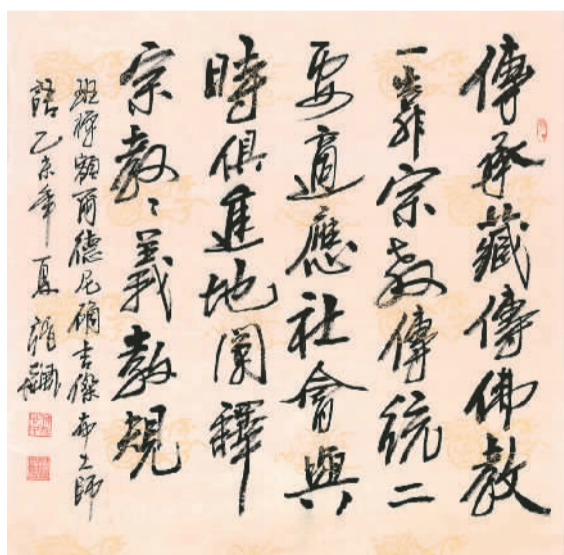 傳承藏傳佛教
一靠宗教傳統二
要適應社會與
時俱進地闡釋
宗教々義教規
班禪額爾德尼確吉傑布大師
語乙未年夏